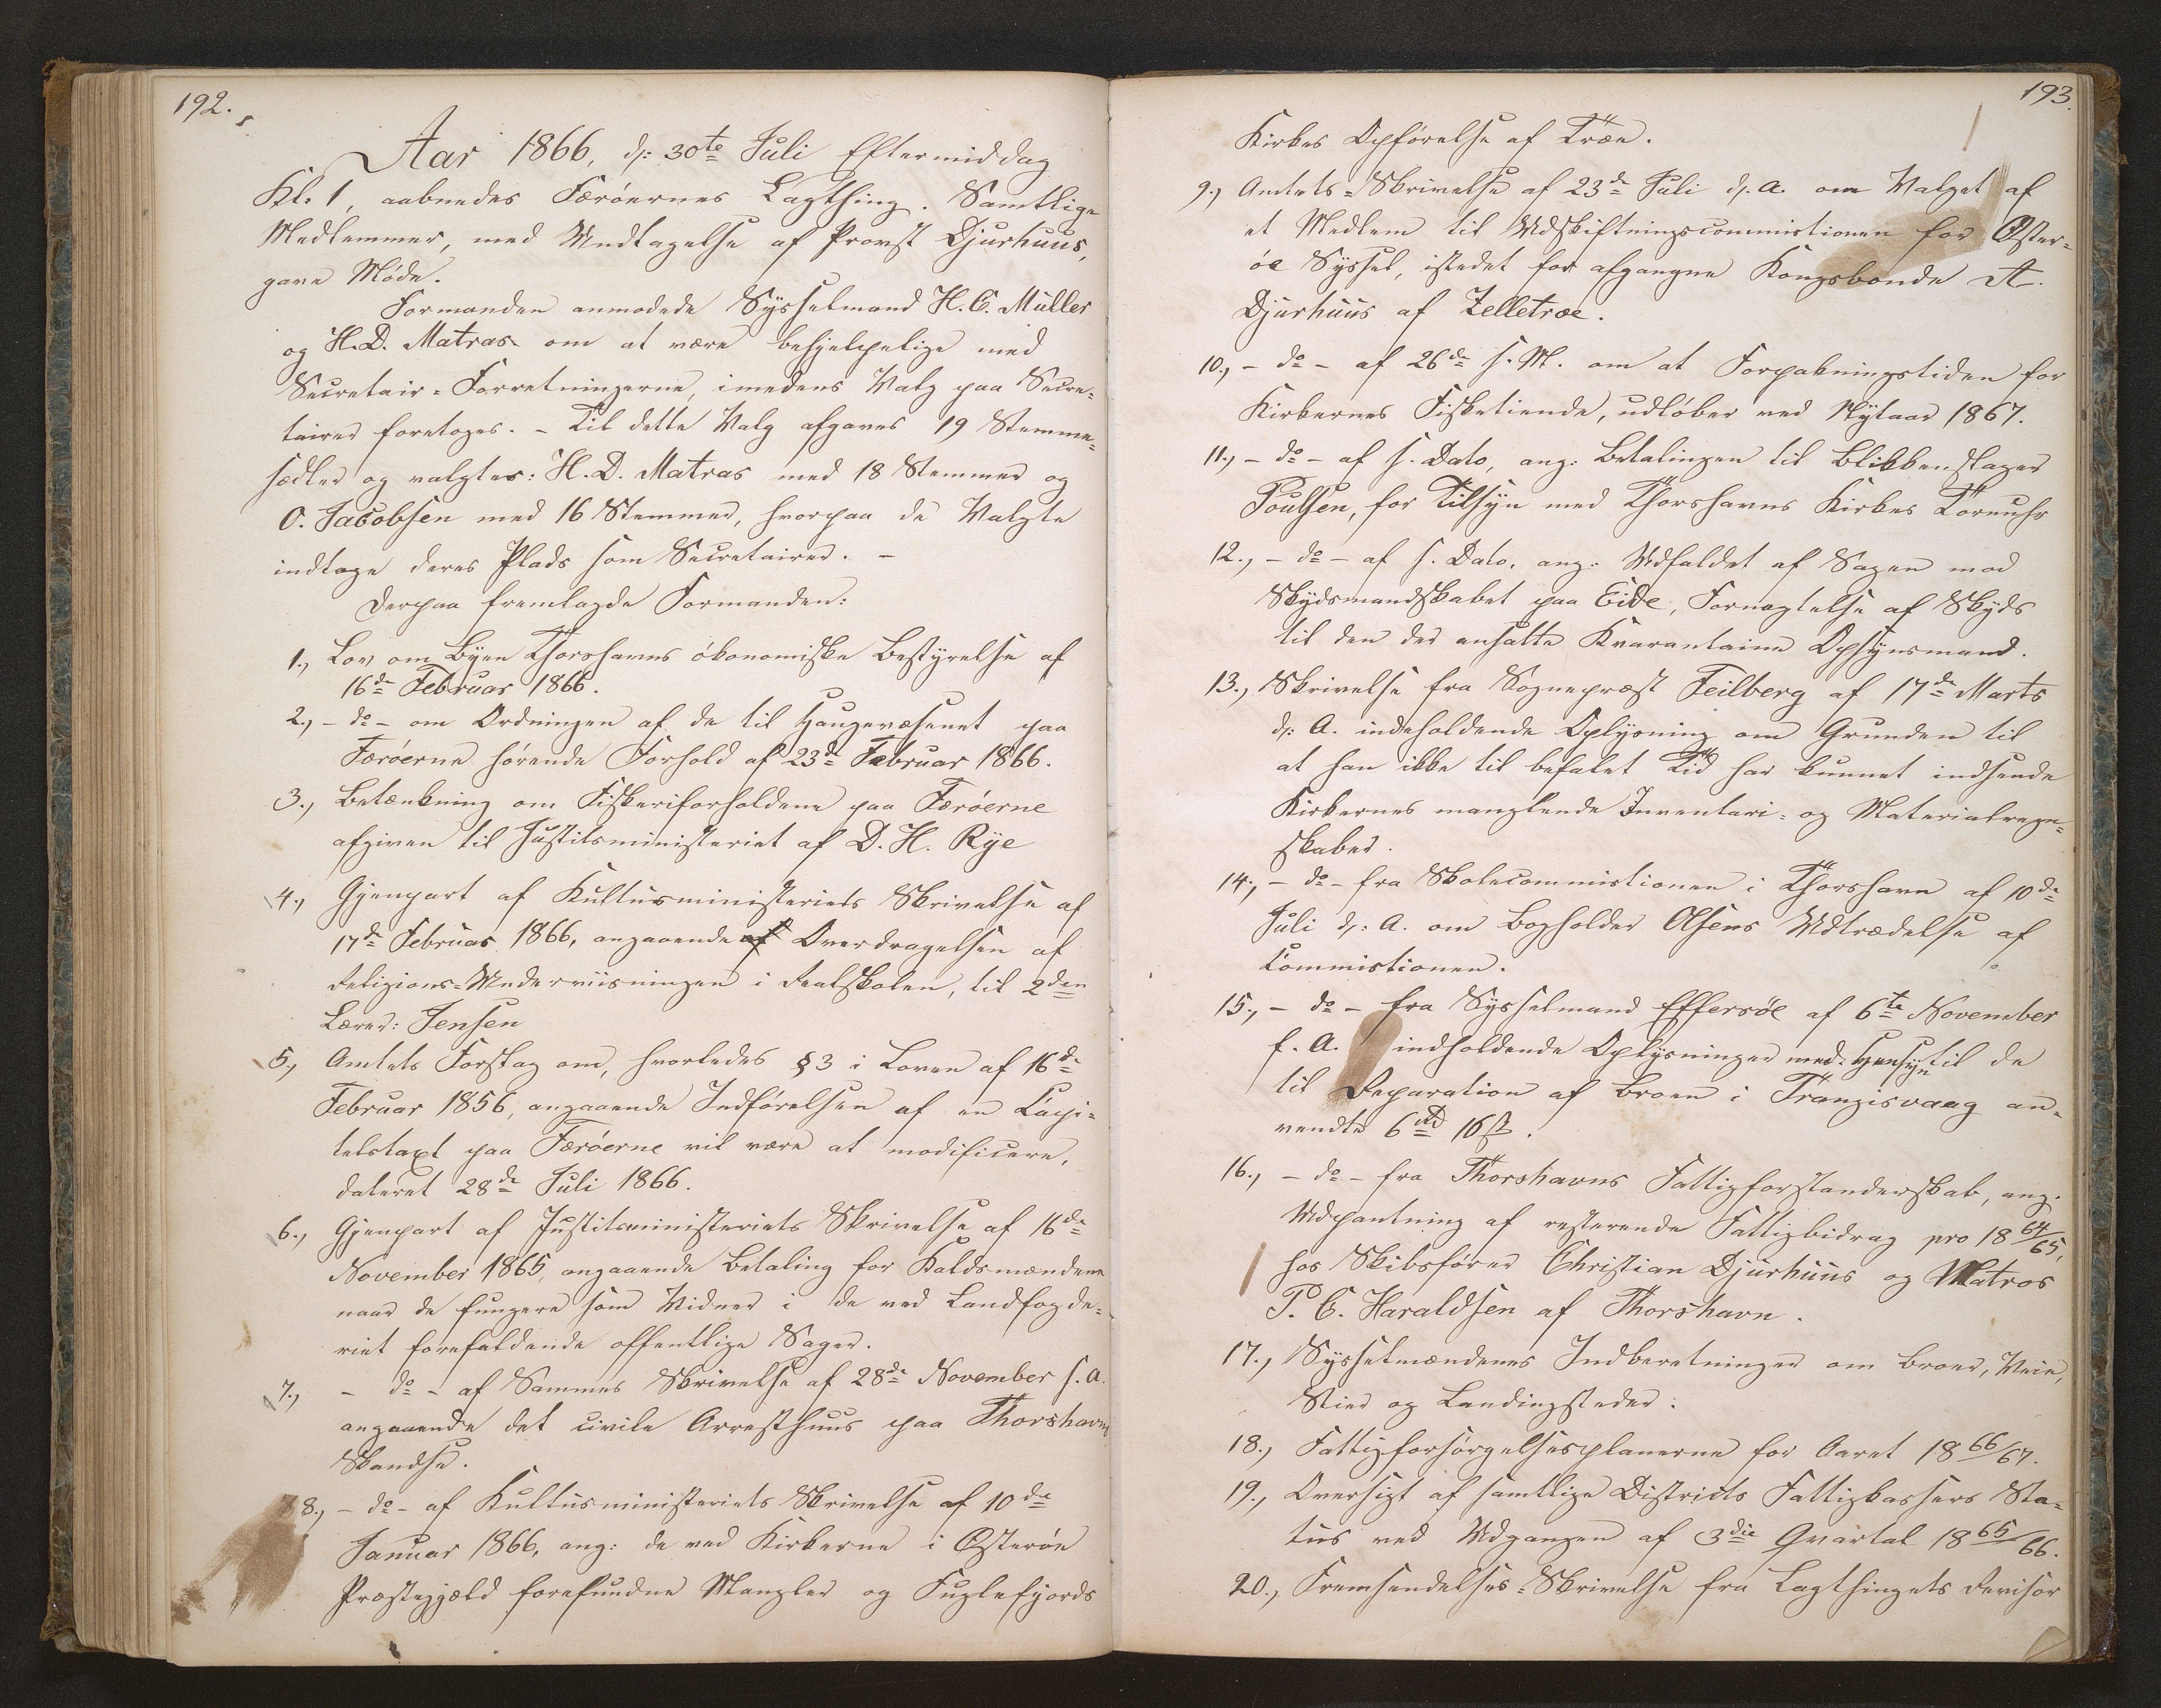 192.
Aar 1866, d: 30te Juli Eftermiddag
Kl. 1, aabnedes Færöernes Lagthing. Samtlige
Medlemmer, med Undtagelse af Provst Djurhuus,
gave Möde.
Formanden anmodede Sysselmand H. C. Müller
og H. D. Matras om at være behjelpelige med
Secretair-Forretningerne, imedens Valg paa Secre-
tairer foretoges. - Til dette Valg afgaves 19 Stemme-
sedler og valgtes: H. D. Matras med 18 Stemmer og
O. Jacobsen med 16 Stemmer, hvorpaa de Valgte
indtoge deres Plads som Secretairer. -
Derpaa fremlagde Formanden:
1., Lov om Byen Thorshavns ökonomiske Bestyrelse af
16de Februar 1866.
2., - do - om Ordningen af de til Haugevæsenet paa
Færöerne hörende Forhold af 23de Februar 1866.
3., Betænkning om Fiskeriforholdene paa Færöerne
afgiven til Justitsministeriet af D. H. Rye
4., Gjenpart af Kultusministeriets Skrivelse af
17de Februar 1866, angaaende af Overdragelsen af
Religions-Underviisningen i Realskolen, til 2den
Lærer: Jensen
5., Amtets Forslag om, hvorledes § 3 i Loven af 16de
Februar 1856, angaaende Indförelsen af en Capi-
telstaxt paa Færöerne vil være at modificere,
dateret 28de Juli 1866.
6., Gjenpart af Justitsministeriets Skrivelse af 16de
November 1865, angaaende Betaling for Kaldsmændene
naar de fungere som Vidner i de ved Landfogde-
riet forefaldende offentlige Sager.
7., - do - af Sammes Skrivelse af 28de November s. A.
angaaende det civile Arresthuus paa Thorshavns
Skandse.
8., - do - af Kultusministeriets Skrivelse af 10de
Januar 1866, ang: de ved Kirkerne i Österöe
Præstegjæld forefundne Mangler og Fuglefjords
193.
Kirkes Opförelse af Træe.
9., Amtets-Skrivelse af 23de Juli d. A. om Valget af
et Medlem til Udskiftningscommissionen for Öster-
öe Syssel, istedet for afgangne Kongsbonde A.
Djurhuus af Zelletræe.
10., - do - af 26de s. M. om at Forpakningstiden for
Kirkernes Fisketiende, udlöber ved Nytaar 1867.
11., - do - af s. Dato, ang: Betalingen til Blikkenslager
Poulsen, for Tilsyn med Thorshavns Kirkes Taarnuhr
12., - do - af s. Dato, ang: Udfaldet af Sagen mod
Skydsmandskabet paa Eide, Fornægtelse af Skyds
til den der ansatte Kvarantaine Opsynsmand.
13., Skrivelse fra Sognepræst Feilberg af 17de Marts
d: A. indeholdende Oplysning om Grunden til
at han ikke til befalet Tid har kunnet indsende
Kirkernes manglende Inventari- og Materialregn-
skaber.
14., - do - fra Skolecommissionen i Thorshavn af 10de
Juli d: A. om Bogholder Olsens Udtrædelse af
Commissionen.
15., - do - fra Sysselmand Effersöe af 6te November
f. A. indholdende Oplysninger med Hensyn til de
til Reparation af Broen i Frangisvaag an-
vendte 6 rd 16 ß.
16., - do - fra Thorshavns Fattigforstanderskab, ang.
Udpantning af resterende Fattigbidrag pro 18 64/65,
hos Skibsförer Christian Djurhuus og Matros
P. C. Haraldsen af Thorshavn.
17., Sysselmændenes Indberetninger om Broer, Veie,
Stier og Landingsteder:
18., Fattigforsörgelsesplanerne for Aaret 18 66/67.
19., Oversigt af samtlige Districts Fattigkassers Sta-
tus ved Udgangen af 3die Qvartal 18 65/66.
20., Fremsendelses-Skrivelse fra Lagthingets Revisor